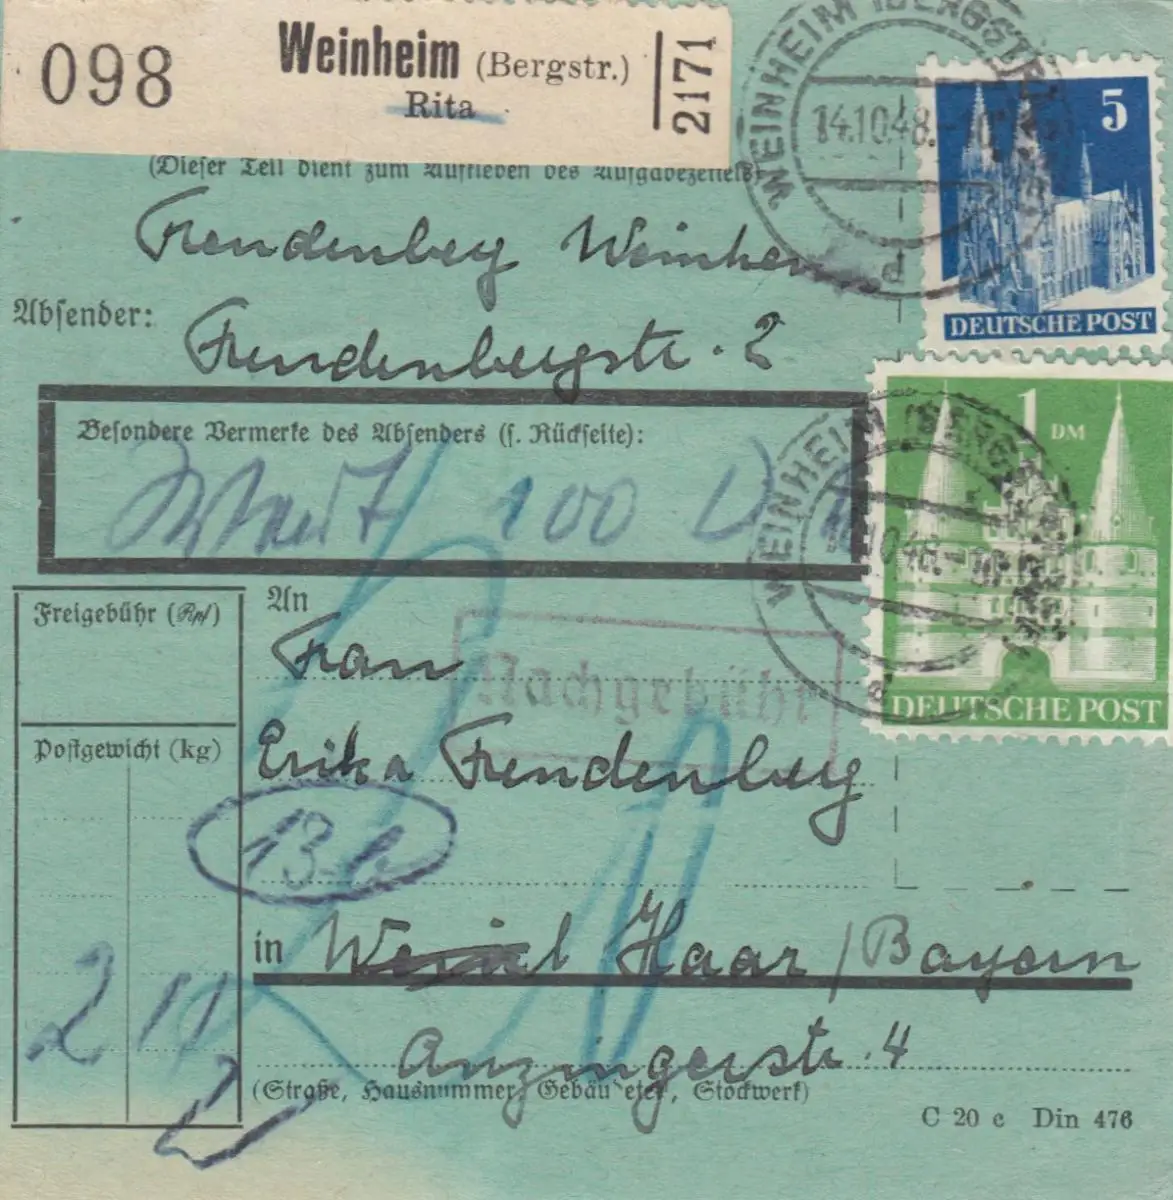 098
Weinheim (Bergstr.)
Rita
2171
WEINHEIM (BERGSTR)
14.10.48.-10
d
5
DEUTSCHE POST
(Dieser Teil dient zum Aufkleben des Aufgabezettels)
Freudenberg Weinheim
Absender:
Freudenbergstr. 2
Besondere Vermerke des Absenders (s. Rückseite):
Wert 100 DM
1
DM
DEUTSCHE POST
WEINHEIM (BERGSTR)
10.48.-10
d
Freigebühr (Rpf)
An
Frau
Nachgebühr
Postgewicht (kg)
Erika Freudenberg
13-b
in Haar / Bayern
2
Anzingerstr. 4
(Straße, Hausnummer, Gebäudeteil, Stockwerk)
C 20 c Din 476